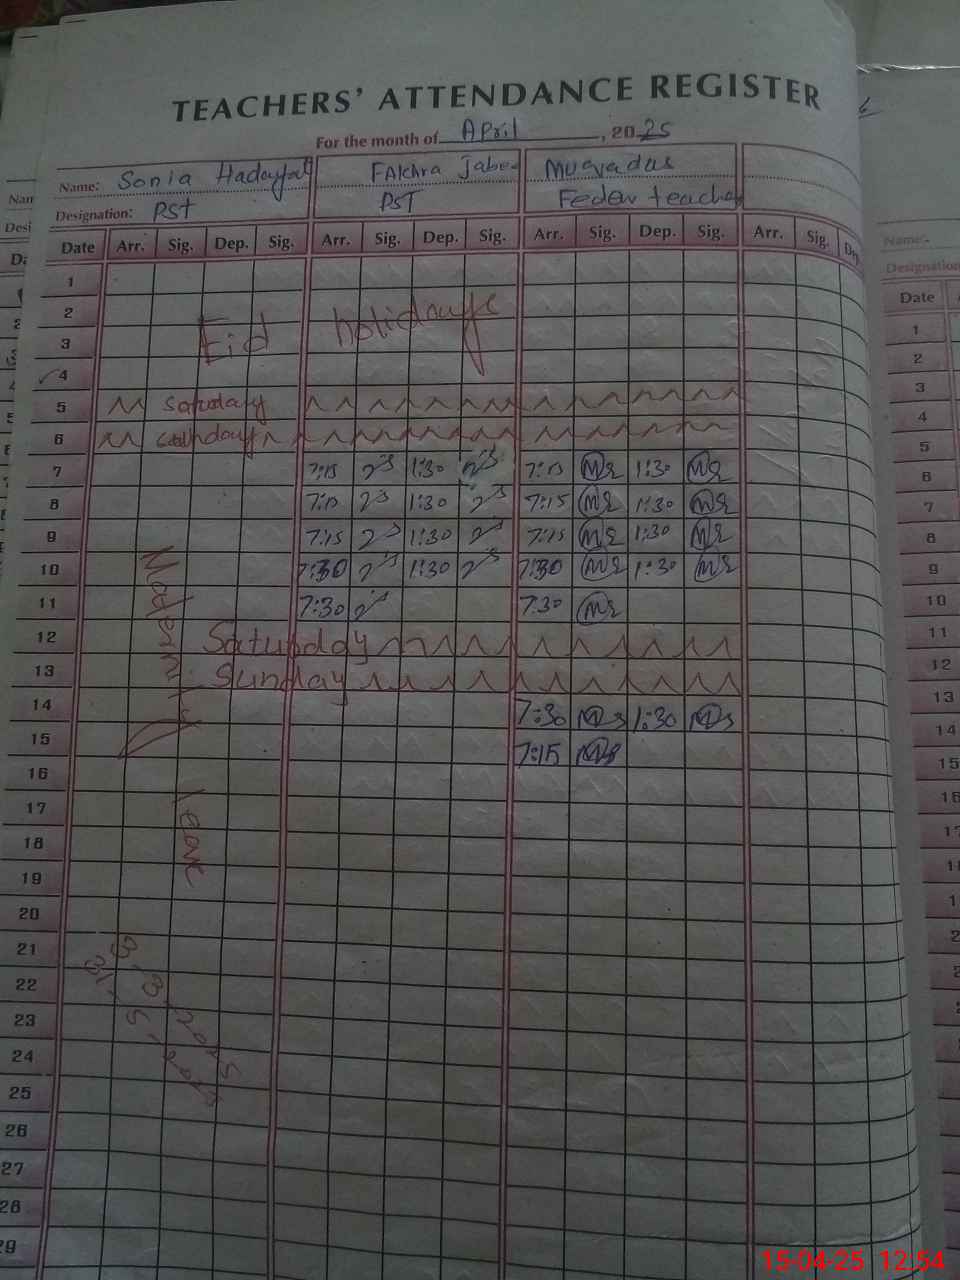 TEACHERS' ATTENDANCE REGISTER
For the month of April, 2025
Name: Sonia Hadayat Fakhra Jabe Muqadas
Designation: PST PST Feder teacher
Date Arr. Sig. Dep. Sig. Arr. Sig. Dep. Sig. Arr. Sig. Dep. Sig. Arr. Sig. Dep.
1
2
Eid holidays
3
4
5 Saturday
6
7 7:15 1:30 7:15 1:30
8 7:15 1:30 7:15 1:30
9 7:15 1:30 7:15 1:30
10 7:30 1:30 7:30 1:30
11 7:30 7:30
12 Saturday
13 Sunday
14 7:30 1:30
15 7:15
Maternity leave
16
17
18
19
20
21
22
23
24
25
26
27
28
29
Name:
Designation
Date
1
2
3
4
5
6
7
8
9
10
11
12
13
14
15
16
15-04-25 12:54